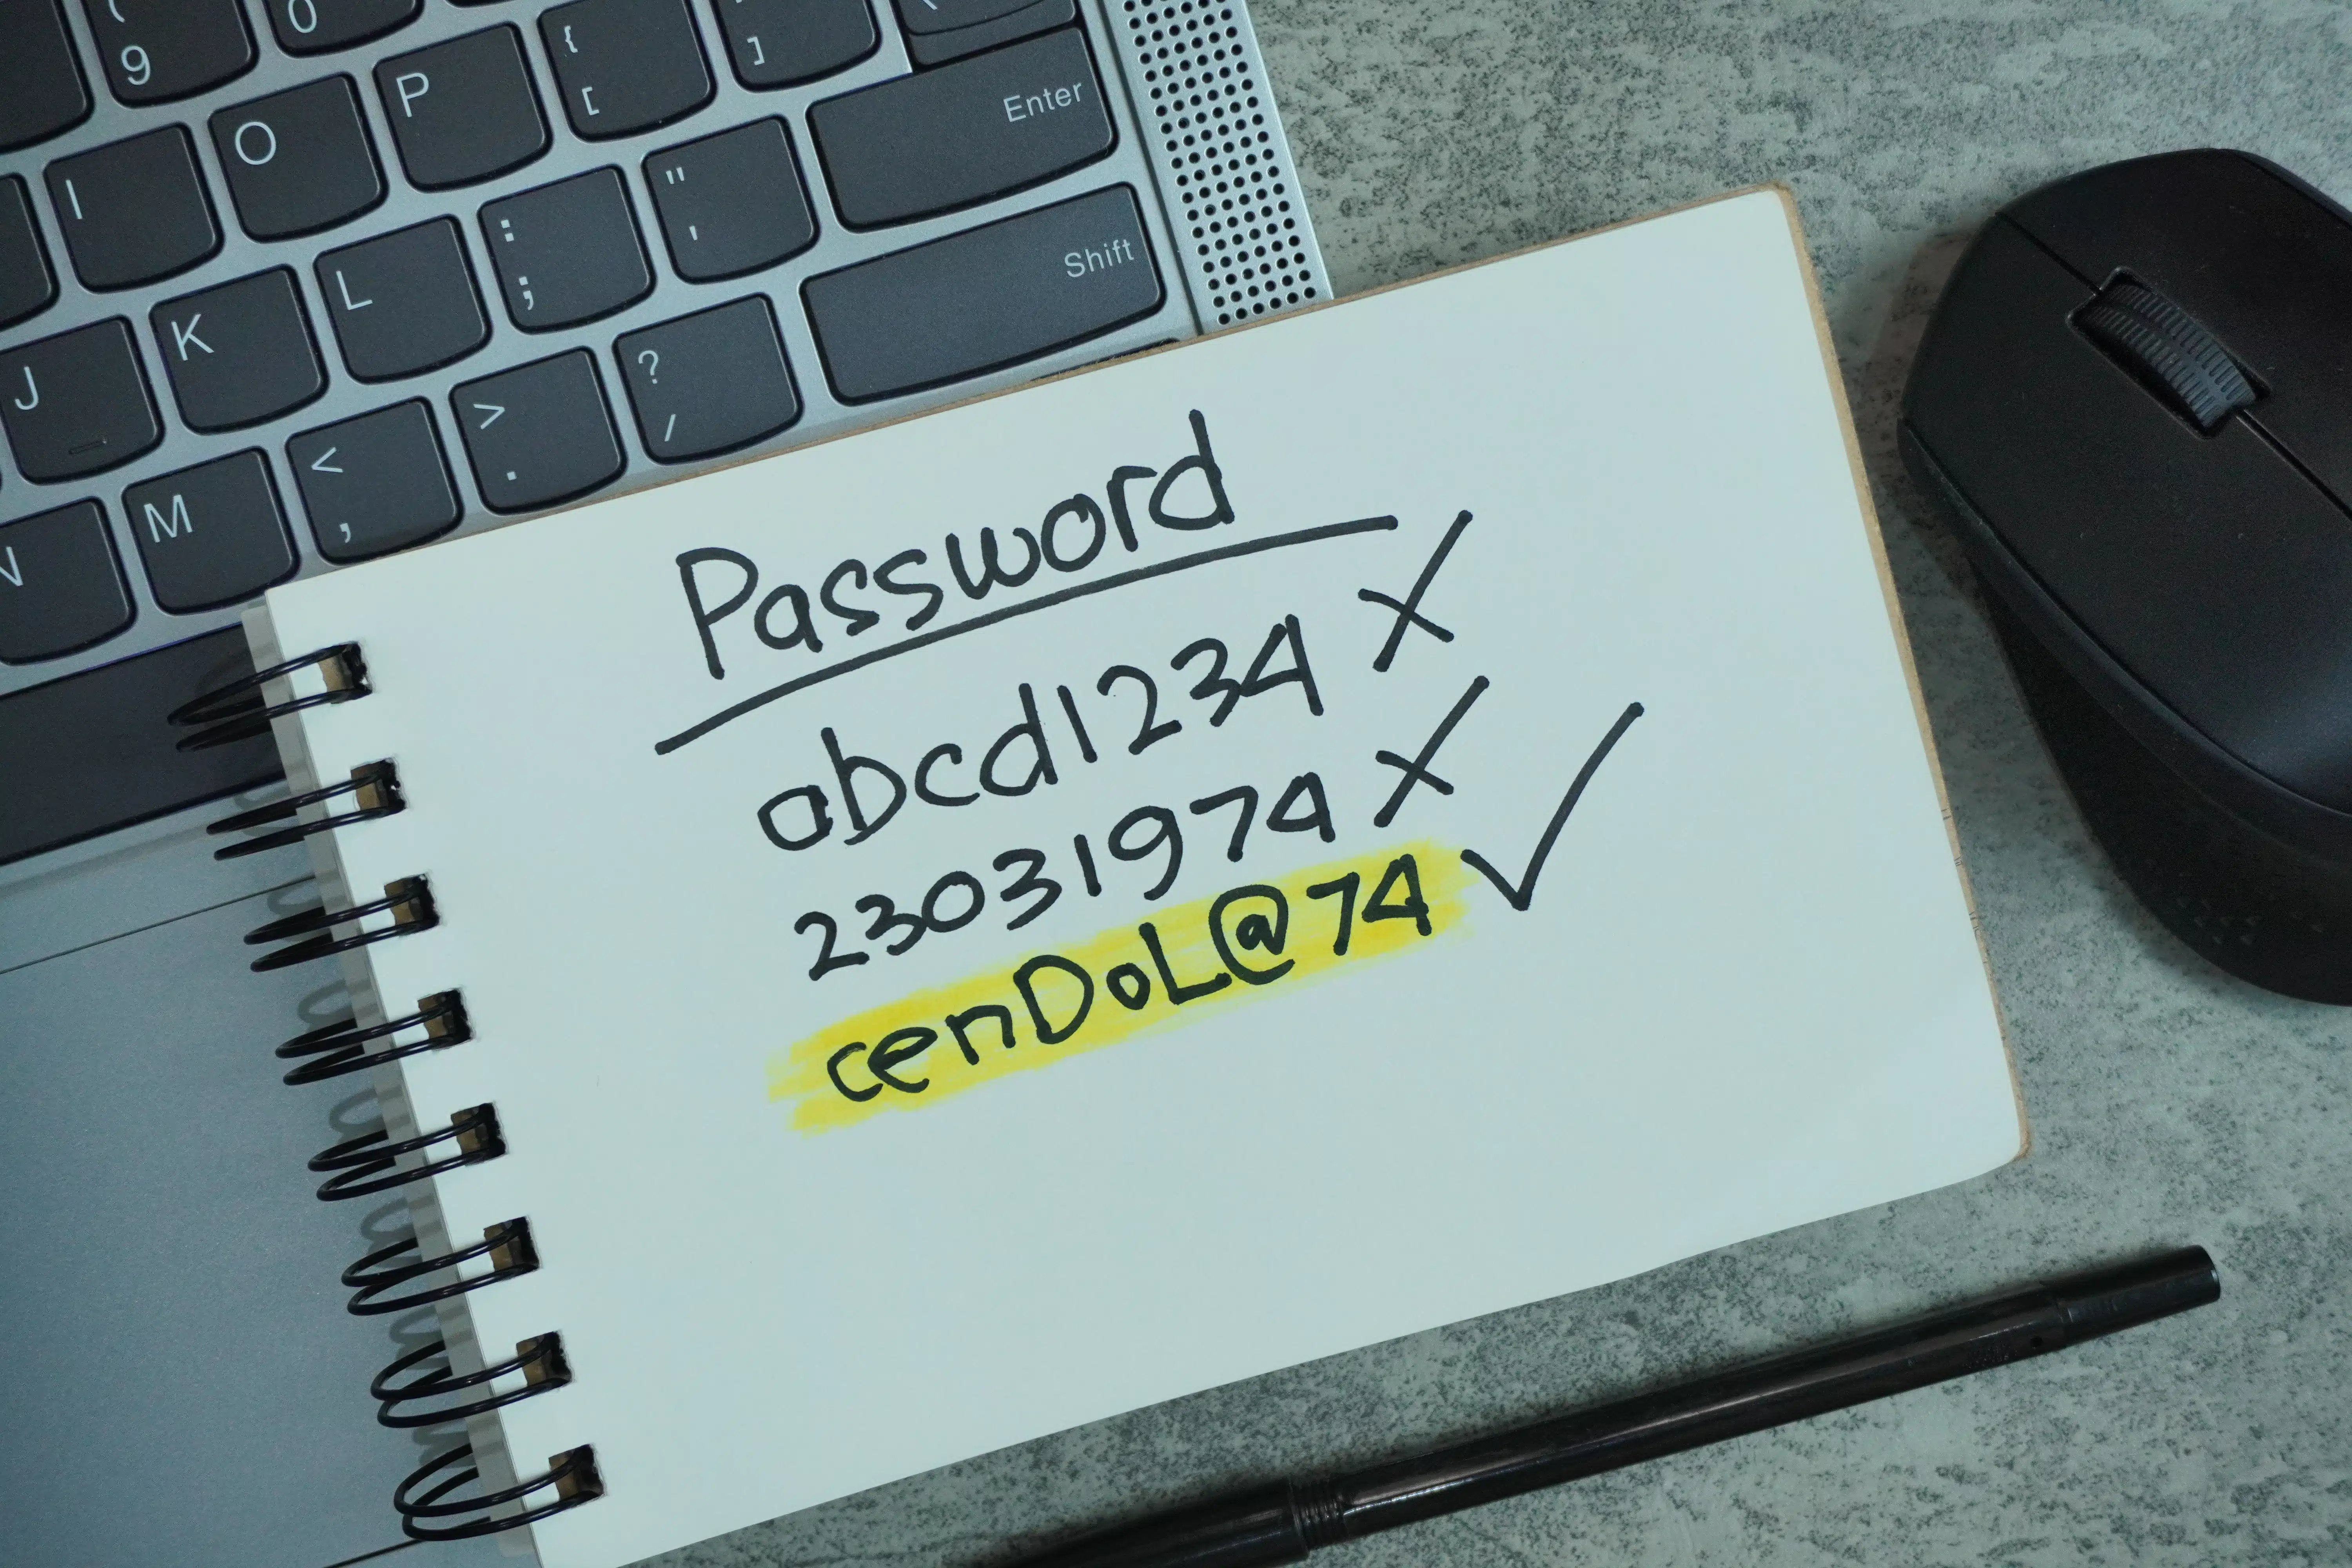 ( 9
0
{ [
] 
Enter
I
O
P
: ;
" '
Shift
J
K
L
? /
N
M
< ,
> .
Password
abcd1234 X
23031974 X
cenDoL@74 ✓